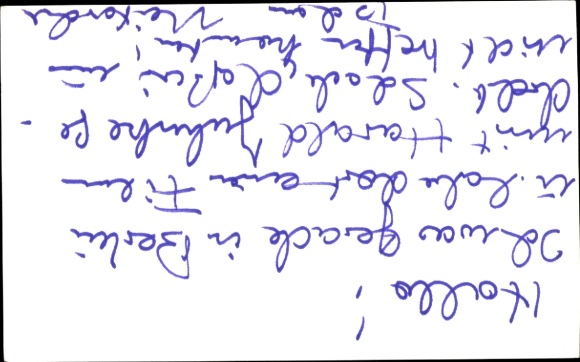 Hallo!
Ich war gerade in Berlin
u. habe dort einen Film
mit Harald Juhnke ge-
dreht. Schade, daß wir uns
nicht treffen konnten!